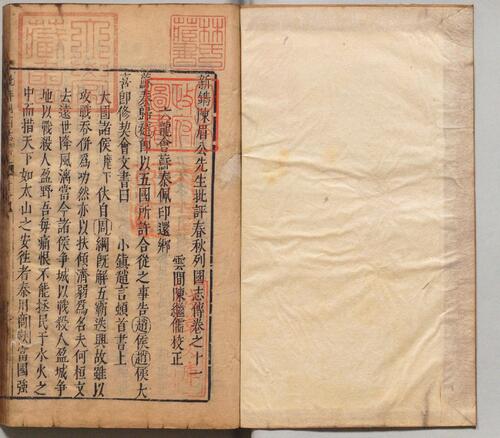 新鐫陳眉公先生批評春秋列國志傳卷之十一
雲間陳繼儒校正
六國會蘇秦佩印還鄉
蘇秦歸趙即以五國所許合從之事告趙侯趙侯大
喜即修契會文書曰 小鎮趙言頓首書上
大國諸侯麾下伏自周綱旣解五霸迭興故雖以
攻戰吞併為功然亦以扶傾濟弱為名夫何桓文
去遠世降風漓當今諸侯爭城以戰殺人盈城爭
地以戰殺人盈野吾每痛恨不能拯民于水火之
中而措天下如太山之安往者秦用商鞅富國強
林氏
藏書